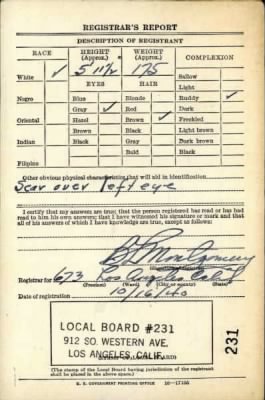 REGISTRAR'S REPORT
DESCRIPTION OF REGISTRANT
RACE HEIGHT (Approx.) WEIGHT (Approx.) COMPLEXION
White ✓ 5' 11½ 175 Sallow
EYES HAIR Light
Negro Blue Blonde Ruddy ✓
Gray ✓ Red Dark
Oriental Hazel Brown ✓ Freckled
Brown Black Light brown
Indian Black Gray Dark brown
Bald Black
Filipino
Other obvious physical characteristics that will aid in identification
Scar over left eye
I certify that my answers are true; that the person registered has read or has had
read to him his own answers; that I have witnessed his signature or mark and that
all of his answers of which I have knowledge are true, except as follows:
Montgomery
Registrar for 673 Los Angeles Calif
(Precinct) (Ward) (City or county) (State)
Date of registration 10/16/40
LOCAL BOARD #231
912 SO. WESTERN AVE.
LOS ANGELES, CALIF.
231
(The stamp of the Local Board having jurisdiction of the registrant
shall be placed in the above space.)
U. S. GOVERNMENT PRINTING OFFICE 16—17105